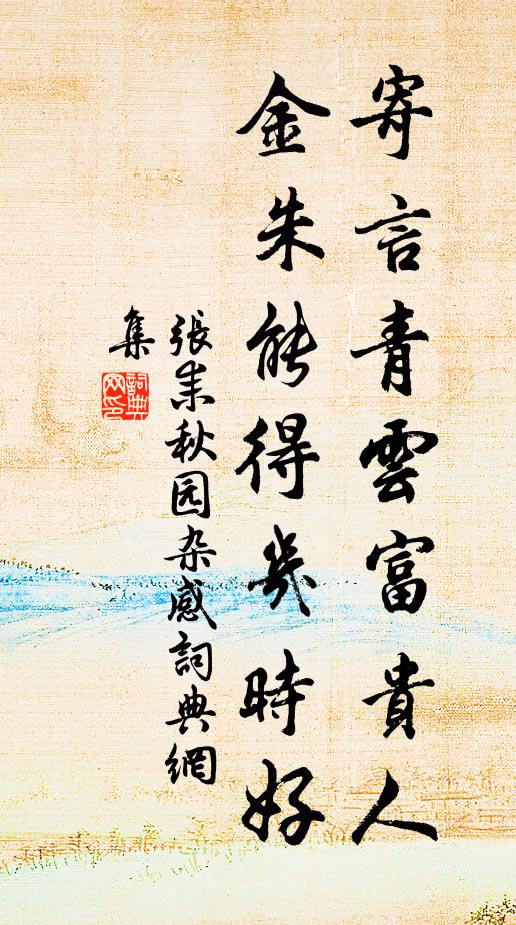 寄言青雲富貴人
金朱能得幾時好
張耒秋园杂感詞典網
集
詞典網印